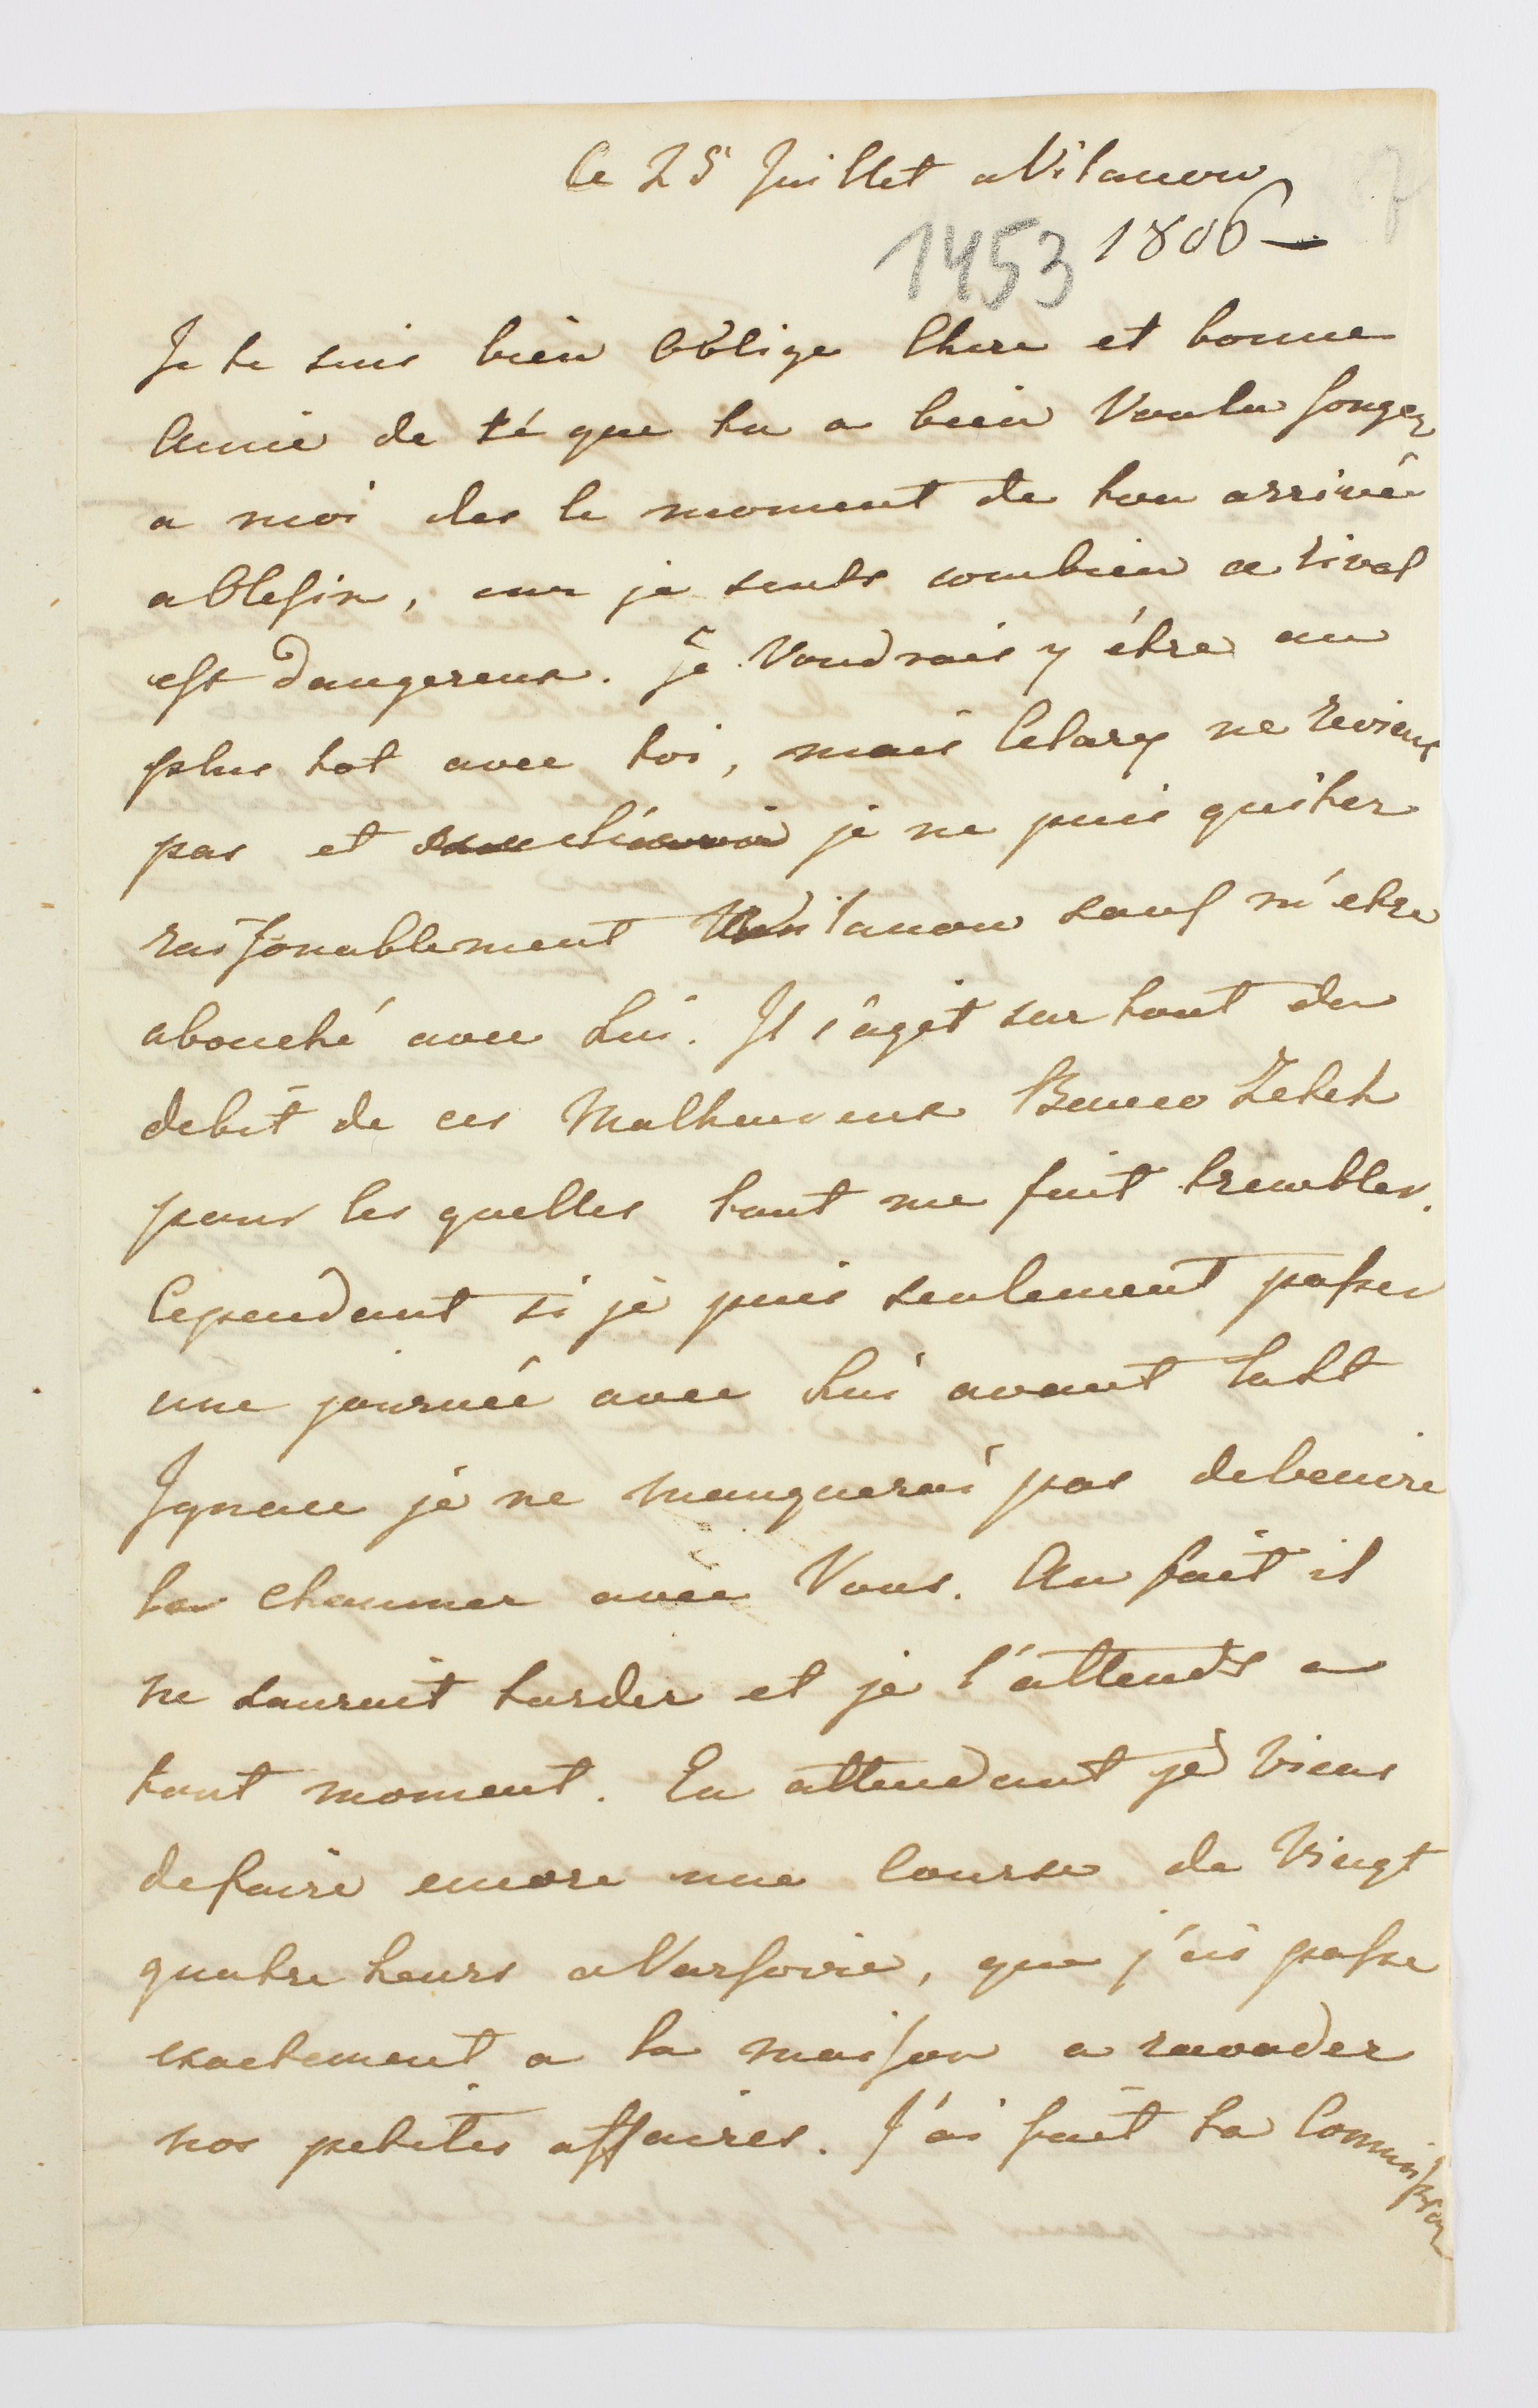 Ce 25 Juillet a Vilanow
1453 1806 —
Je te suis bien Oblige Chere et bonne
Amie de té que tu a bien Voulu songer
a moi des le moment de ton arrivée
a Olesin, car je sents combien ce rival
est dangereux. Je Voudrais y être au
plus tot avec toi, mais Celary ne reviens
pas et je ne puis quiter
raisonablement Vilanow sauf m'etre
abouché avec Lui. Il s'agit surtout du
debit de ces Malheureux
pour les quelles tout me fait trembler.
Cependant si je puis seulement passer
une journée avec Lui avant la St
Ignace je ne manquerai pas de venire
la chaumer avec Vous. Au fait il
ne sauroit tarder et je l'attends a
tout moment. En attendant je viens
de faire encore une Course de Vingt
quatre heurs a Varsovie, que j'ai passe
exactement a la maison a ravoder
nos petites affaires. J'ai fait ta Commission